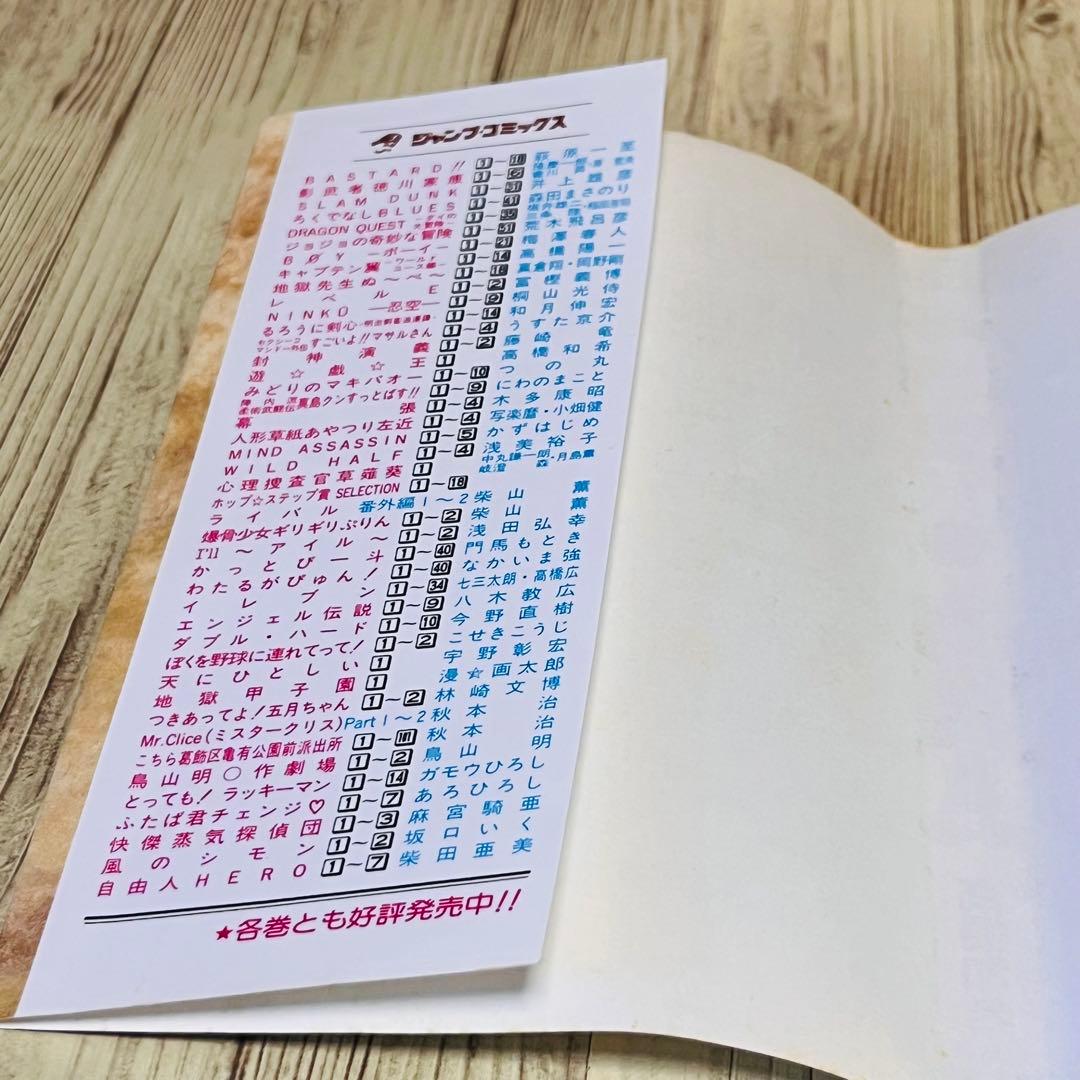 ジャンプ・コミックス
BASTARD!! 1～18 萩原一至
影武者徳川家康 1～6
SLAM DUNK 1～31 井上雄彦
ろくでなしBLUES 森田まさのり
DRAGON QUEST －ダイの大冒険－
ジョジョの奇妙な冒険 荒木飛呂彦
BØY －ボーイ－ 1～21 梅澤春人
キャプテン翼 －ワールドユース編－ 1～14 高橋陽一
地獄先生ぬ～べ～ 1～18 真倉翔・岡野剛
レベルE 1～2 冨樫義博
NINKŪ －忍空－ 1～9 桐山光侍
るろうに剣心 －明治剣客浪漫譚－ 1～14 和月伸宏
セクシーコマンドー外伝 すごいよ!!マサルさん 1～4 うすた京介
封神演義 1～2 藤崎竜
遊☆戯☆王 1 高橋和希
みどりのマキバオー 1～10 つの丸
陣内流柔術武闘伝 真島クンすっとばす!! 1～9 にわのまこと
幕張 1～4 木多康昭
人形草紙あやつり左近 1～4 写楽麿・小畑健
MIND ASSASSIN 1～5 かずはじめ
WILD HALF 1～4 浅美裕子
心理捜査官草薙葵 1 中丸謙一朗・月島薫
ホップ☆ステップ賞 SELECTION 1～18
ライバル 番外編1～2 柴山薫
爆骨少女ギリギリぷりん 1～2 柴山薫
I'll ～アイル～ 1～2 浅田弘幸
かっとび一斗 1～40 門馬もとき
わたるがぴゅん! 1～40 なかいま強
イレブン 1～34 七三太朗・高橋広
エンジェル伝説 1～9 八木教広
ダブル・ハード 1～10 今野直樹
ぼくを野球に連れてって! 1～2 こせきこうじ
天にひとしい 1 宇野彰宏
地獄甲子園 1 漫☆画太郎
つきあってよ!五月ちゃん 1～2 林崎文博
Mr.Clice(ミスタークリス) Part 1～2 秋本治
こちら葛飾区亀有公園前派出所 1～101 秋本治
鳥山明○作劇場 1～2 鳥山明
とっても!ラッキーマン 1～14 ガモウひろし
ふたば君チェンジ♡ 1～7 あろひろし
快傑蒸気探偵団 1～3 麻宮騎亜
風のシモン 1～2 坂口いく
自由人HERO 1～7 柴田亜美
★各巻とも好評発売中!!